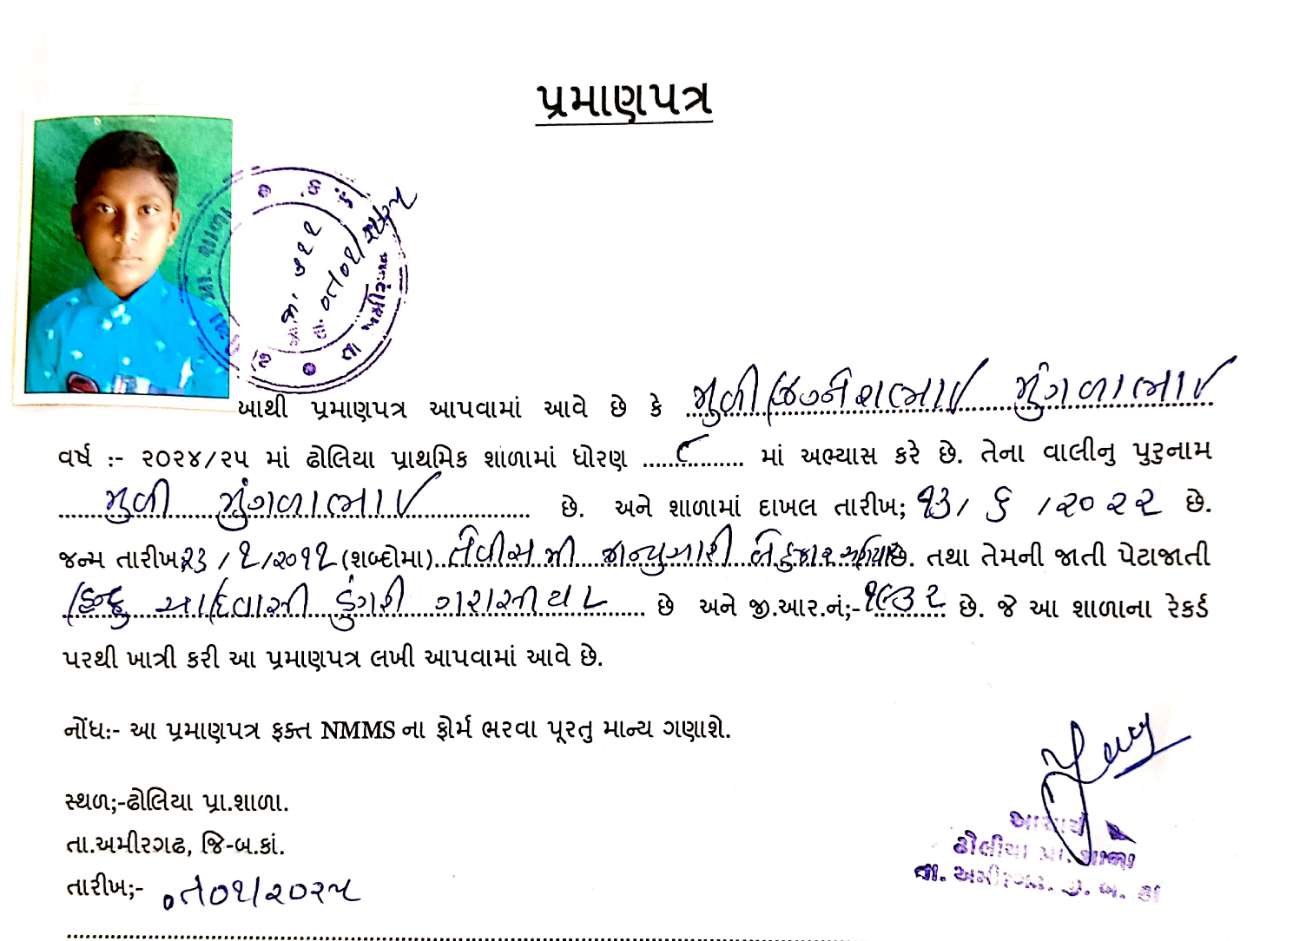 પ્રમાણપત્ર
આથી પ્રમાણપત્ર આપવામાં આવે છે કે મુળી જીગ્નેશભાઈ મુંગળાભાઈ
વર્ષ :- ૨૦૨૪/૨૫ માં ઢોલિયા પ્રાથમિક શાળામાં ધોરણ ૮ માં અભ્યાસ કરે છે. તેના વાલીનુ પુરુનામ
મુળી મુંગળાભાઈ છે. અને શાળામાં દાખલ તારીખ; ૧૩/ ૬ /૨૦૨૨ છે.
જન્મ તારીખ ૨૩/૧/૨૦૧૧ (શબ્દોમા) તેવીસમી જાન્યુઆરી બે હજાર અગિયાર છે. તથા તેમની જાતી પેટાજાતી
હિન્દુ આદિવાસી ડુંગરી ગરાસીયા છે અને જી.આર.નં;- ૧૯૩૨ છે. જે આ શાળાના રેકર્ડ
પરથી ખાત્રી કરી આ પ્રમાણપત્ર લખી આપવામાં આવે છે.
નોંધ:- આ પ્રમાણપત્ર ફક્ત NMMS ના ફોર્મ ભરવા પૂરતુ માન્ય ગણાશે.
સ્થળ;-ઢોલિયા પ્રા.શાળા.
તા.અમીરગઢ, જિ-બ.કાં.
તારીખ;-
આચાર્ય
ઢોલીયા પ્રા. શાળા
તા. અમીરગઢ. જી. બ. કાં